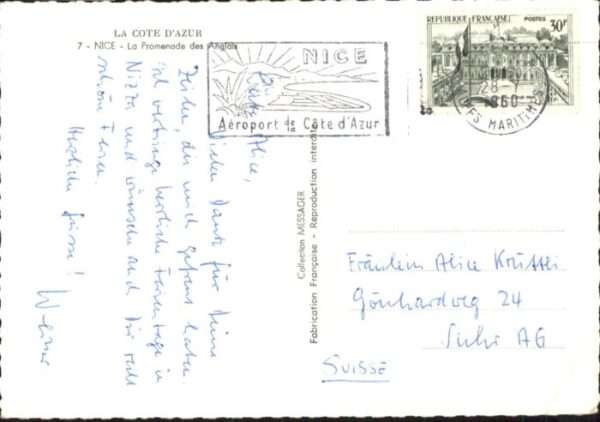 LA COTE D'AZUR
7 - NICE - La Promenade des Anglais
NICE
Aéroport de la Côte d'Azur
RÉPUBLIQUE FRANÇAISE POSTES 30F
28
1960
ALPES MARITIMES
Liebe Alice,
Vielen Dank für Deine
Zeilen, die mich gefreut haben.
Ich verbringe herrliche Ferientage in
Nizza und wünsche auch Dir recht
schöne Ferien.
Herzliche Grüsse!
Collection MESSAGER
Fabrication Française - Reproduction interdite
Fräulein Alice
Gönhardweg 24
Suhr AG
SUISSE